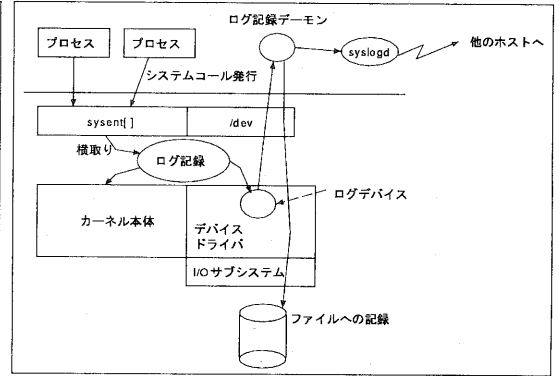 ログ記録デーモン
プロセス
プロセス
syslogd
他のホストへ
システムコール発行
sysent[ ]
/dev
横取り
ログ記録
ログデバイス
カーネル本体
デバイス
ドライバ
I/Oサブシステム
ファイルへの記録